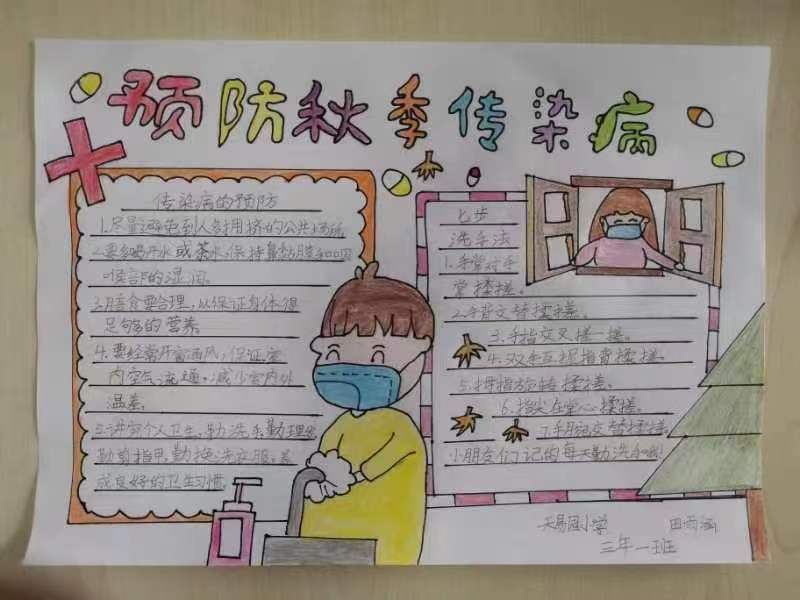 预防秋季传染病
传染病的预防
1.尽量避免到人多拥挤的公共场所
2.要多喝开水或茶水,保持鼻黏膜和口
喉部的湿润
3.膳食要合理,从保证身体得
足够的营养
4.要经常开窗通风,保证室
内空气流通,减少室内外
温差
5.讲究个人卫生,勤洗手勤理发
勤剪指甲,勤换洗衣服,养
成良好的卫生习惯
七步
洗手法
1.手掌对手
掌揉搓
2.手背交替揉搓
3.手指交叉搓一搓
4.双手互握指背揉搓
5.拇指旋转揉搓
6.指尖在掌心揉搓
7.手腕交替揉搓
小朋友们记的每天勤洗手哦!
小学
三年一班